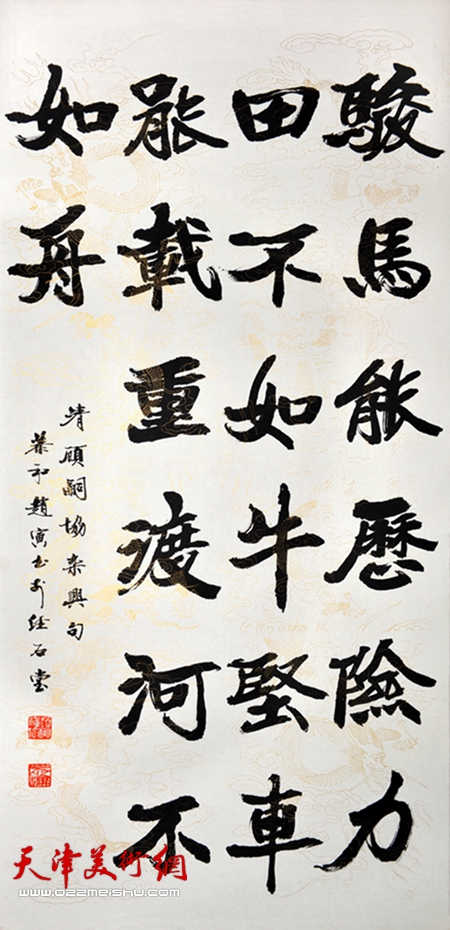 駿馬能歷險力
田不如牛堅車
能載重渡河不
如舟
清顧嗣協雜興句
慕和趙寅書於經石堂
天津美術網
www.022meishu.com